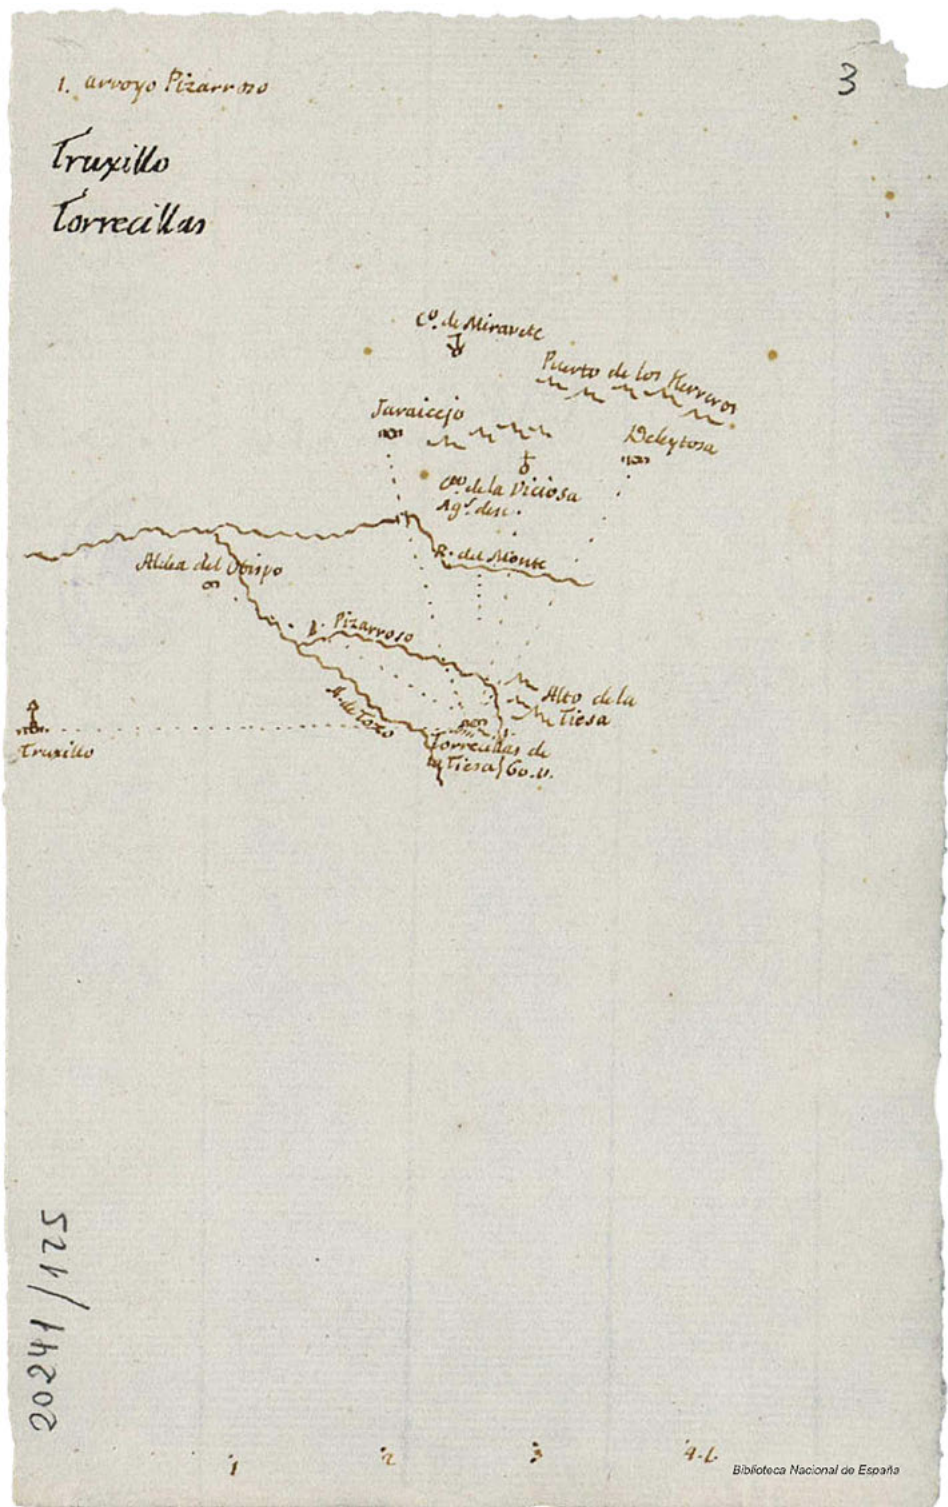 1. arroyo Pizarroso
3
Truxillo
Torrecillas
Co. de Miravete
Puerto de los Herreros
Jaraicejo
Deleytosa
de la Viciosa
Ags. desc.
R. del Monte
Aldea del Obispo
1. Pizarroso
Alto de la
Tiesa
A. de Tozo
Truxillo
Torrecillas de
la Tiesa 60.v.
521/14202
1
2
3
4.L
Biblioteca Nacional de España